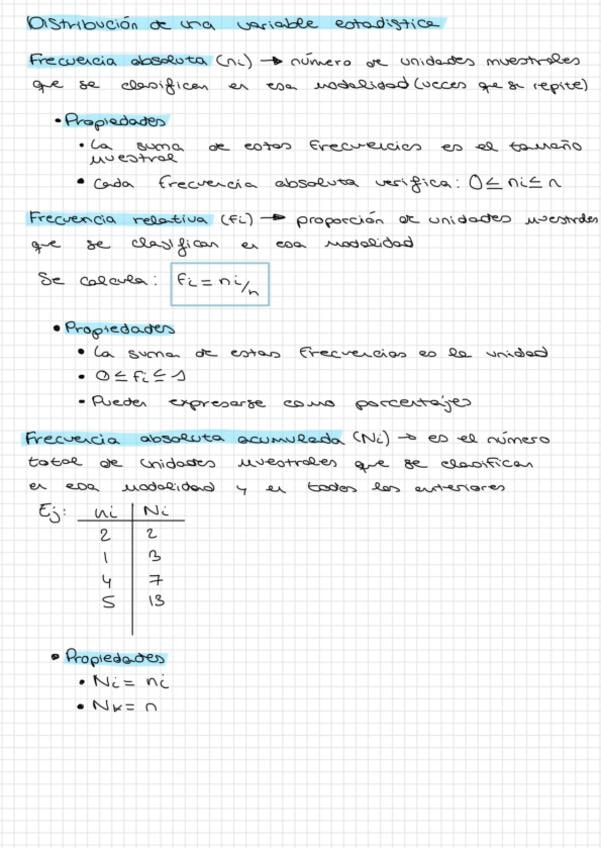 Distribución de una variable estadística
Frecuencia absoluta (ni) → número de unidades muestrales
que se clasifican en esa modalidad (veces que se repite)
• Propiedades
• La suma de estas frecuencias es el tamaño
muestral
• Cada frecuencia absoluta verifica: 0 ≤ ni ≤ n
Frecuencia relativa (fi) → proporción de unidades muestrales
que se clasifican en esa modalidad
Se calcula: fi = ni/n
• Propiedades
• La suma de estas frecuencias es la unidad
• 0 ≤ fi ≤ 1
• Pueden expresarse como porcentajes
Frecuencia absoluta acumulada (Ni) → es el número
total de unidades muestrales que se clasifican
en esa modalidad y en todas las anteriores
Ej: ni Ni
2 2
1 3
4 7
5 13
• Propiedades
• Ni = ni
• Nk = n